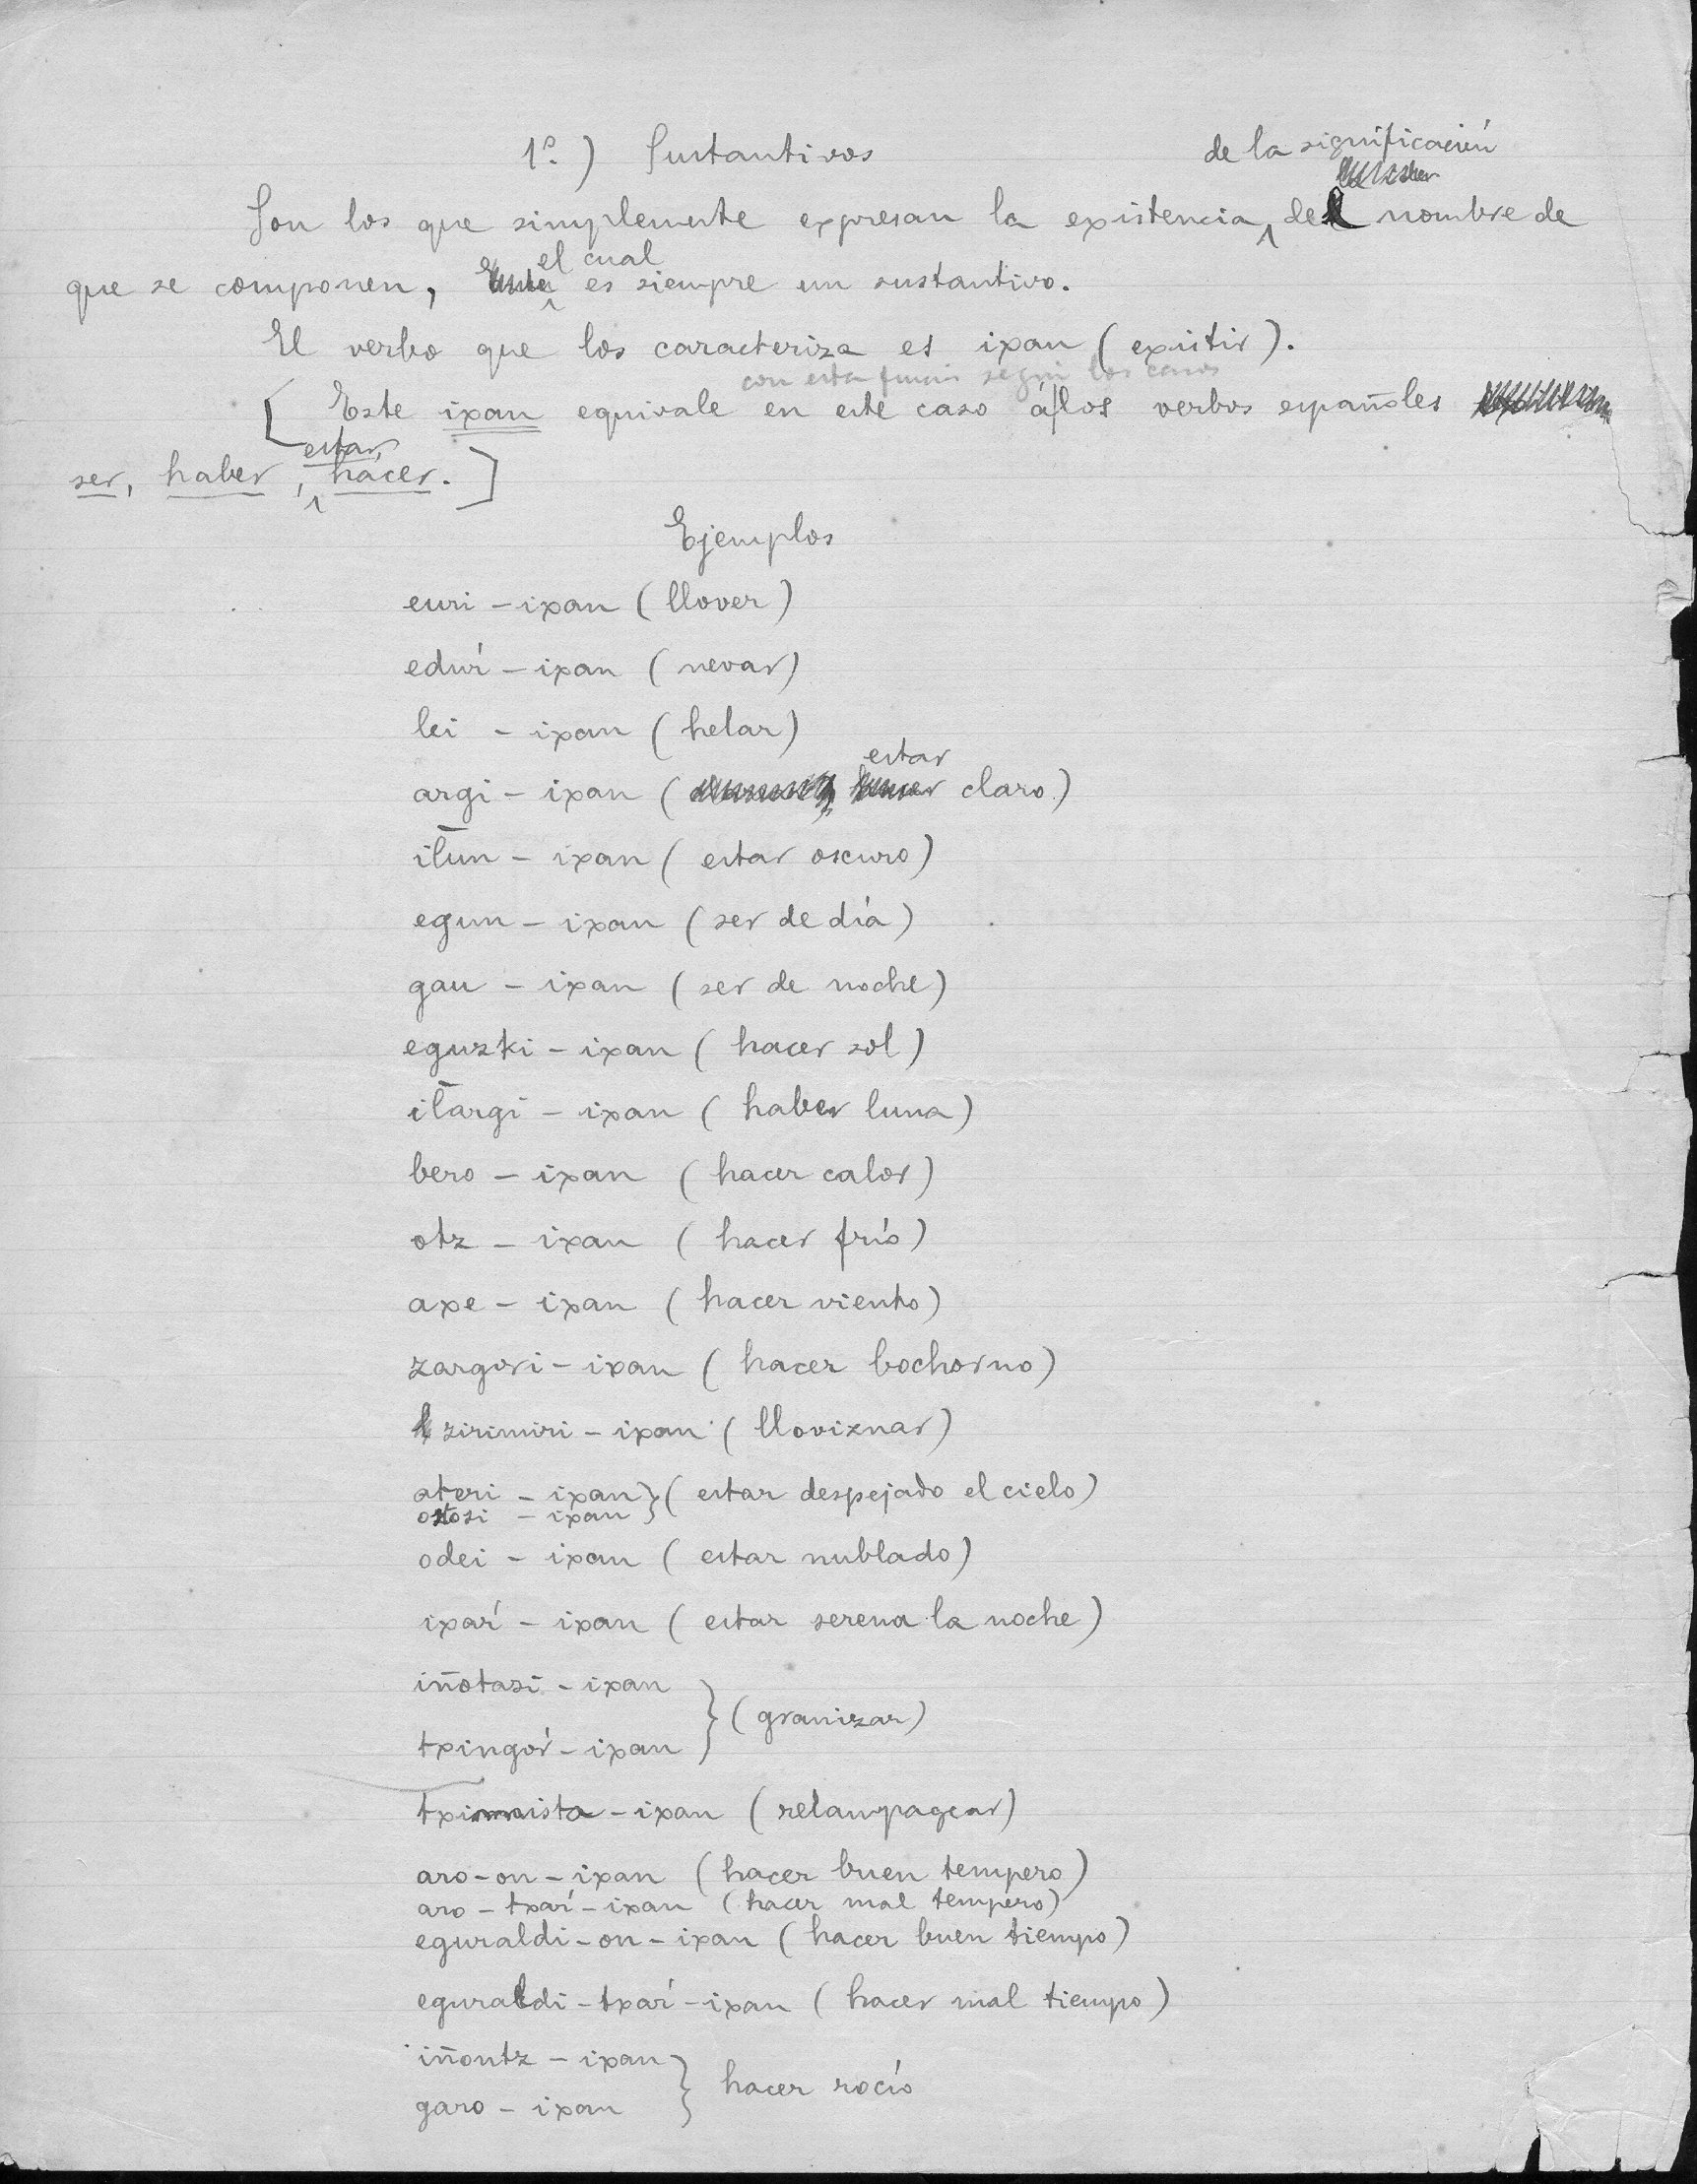 1º.) Sustantivos
de la significación
Son los que simplemente expresan la existencia, del nombre de
el cual
que se componen, es siempre un sustantivo.
El verbo que los caracteriza es ixan (existir).
con esta función según los casos
[Este ixan equivale en este caso á los verbos españoles
estar,
ser, haber, hacer.]
Ejemplos
euri - ixan (llover)
eduŕ - ixan (nevar)
lei - ixan (helar)
estar
argi - ixan (claro)
il̄un - ixan (estar oscuro)
egun - ixan (ser de día)
gau - ixan (ser de noche)
eguzki - ixan (hacer sol)
il̄argi - ixan (haber luna)
bero - ixan (hacer calor)
otz - ixan (hacer frío)
axe - ixan (hacer viento)
zargori - ixan (hacer bochorno)
zirimiri - ixan (lloviznar)
ateri - ixan } (estar despejado el cielo)
ostosi - ixan
odei - ixan (estar nublado)
ixaŕ - ixan (estar serena la noche)
iñotasi - ixan
} (granizar)
txingoŕ - ixan
tximista - ixan (relampagear)
aro-on - ixan (hacer buen tempero)
aro - txaŕ - ixan (hacer mal tempero)
eguraldi-on - ixan (hacer buen tiempo)
eguraldi - txaŕ - ixan (hacer mal tiempo)
iñontz - ixan
} hacer rocío
garo - ixan